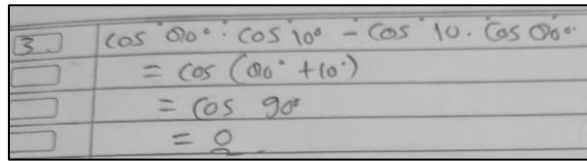 3. cos 80° · cos 10° - cos 10 · cos 80°
= cos (80° + 10°)
= cos 90°
= 0